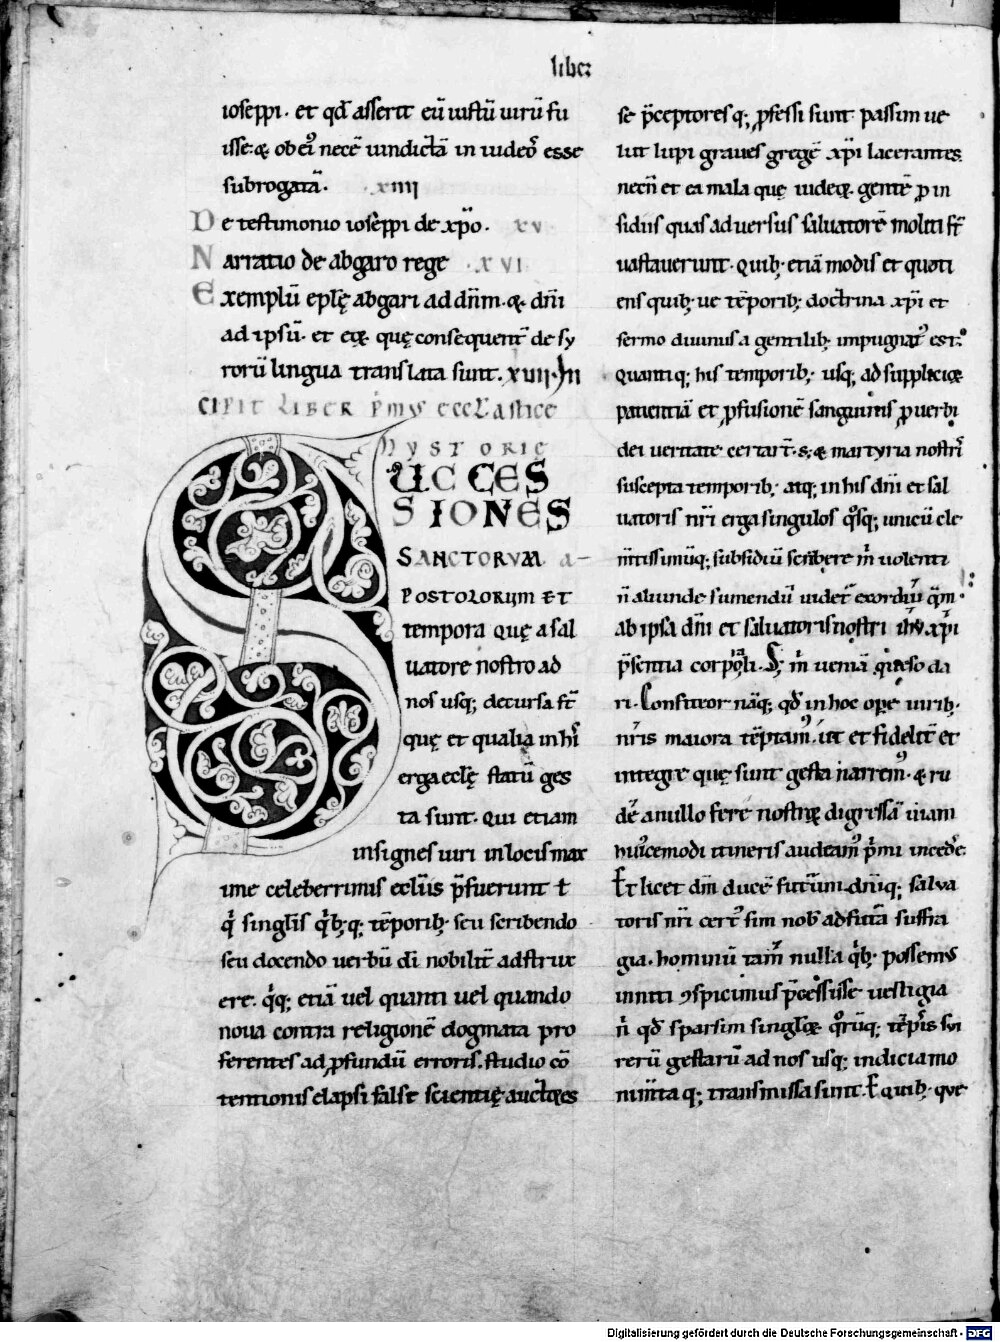 liber
ioseppi. et qđ asserit eũ iustũ uirũ fu
isse. & ob ei᷒ necẽ uindictã in iudeoꝝ esse
subrogatã. xiiii
De testimonio ioseppi de xp̃o. xv.
Narratio de abgaro rege .xvi
Exemplũ epłę abgari ad dñm. & dñi
ad ipsũ. et eꝝ quę consequent̃ de sy
rorũ lingua translata sunt. xvii. In
cipit liber p̃mus eccłasticę
hystorię
SUCCES
SIONES
SANCTORVM a-
POSTOLORUM ET
tempora quę a sal
uatore nostro ad
nos usq; decursa st̃
quę et qualia in hĩ
erga ecłę statũ ges
ta sunt. Qui etiam
insignes uiri in locis max
ime celeberrimis ecłiis p̃fuerunt ł
q̇ singłis q̇b; q; tẽporib; seu scribendo
seu docendo uerbũ dĩ nobilit̃ adstrux
ere. q̇q; etiã uel quanti uel quando
noua contra religionẽ dogmata pro
ferentes ad ꝓfundũ erroris. studio cõ
tentionis elapsi false scientię auctores
se p̃ceptoresq; ꝓfessi sunt passim ue
lut lupi graues gregẽ xp̃i lacerantes
necñ et ea mala quę iudeoꝝ gentẽ ꝓ in
sidiis quas aduersus saluatorẽ moliti st̃
uastauerunt. Quib; etiã modis et quoti
ens quib; ue tẽporib; doctrina xp̃i et
sermo diuinus a gentilib; impugnat᷒ est.
Quantiq; his temporib; usq; ad supplicioꝝ
patientiã et ꝓfusionẽ sanguinis ꝓ uerbi
dei ueritate certarĩt. s; & martyria nostrĩ
suscepta temporib; atq; in his dñi et sal
uatoris nr̃i erga singulos q̊sq; unicũ cle
m̃tissimũq; subsidiũ scribere m̃ uolenti
ñ aliunde sumendũ uidet̃ exordiũ q̃m
ab ipsa dñi et saluatoris nostri ihũ xp̃i
p̃sentia corpoꝛali. S; m̃ ueniã queso da
ri. Confiteor nãq; qđ in hoc oꝑe uirib;
nr̃is maiora tẽptam᷒. ut et fidelit̃ et
integre quę sunt gesta narrem᷒. & ru
dẽ a nullo fere nostroꝝ digressã uiam
hui᷒cemodi itineris audeam᷒ p̃mi incedẽ.
Et licet dm̃ ducẽ futurum dñiq; salua
toris nr̃i cert᷒ sim nob adfutã suffra
gia. hominũ tam̃ nulla q̇b; possemus
inniti ꝯspicimus p̃cessisse uestigia
ñ qđ sparsim singłoꝝ q̊rũq; tẽpis sui
rerũ gestarũ ad nos usq; indicia mo
nimtaq; transmissa sunt. E quib; que
Digitalisierung gefördert durch die Deutsche Forschungsgemeinschaft - DFG